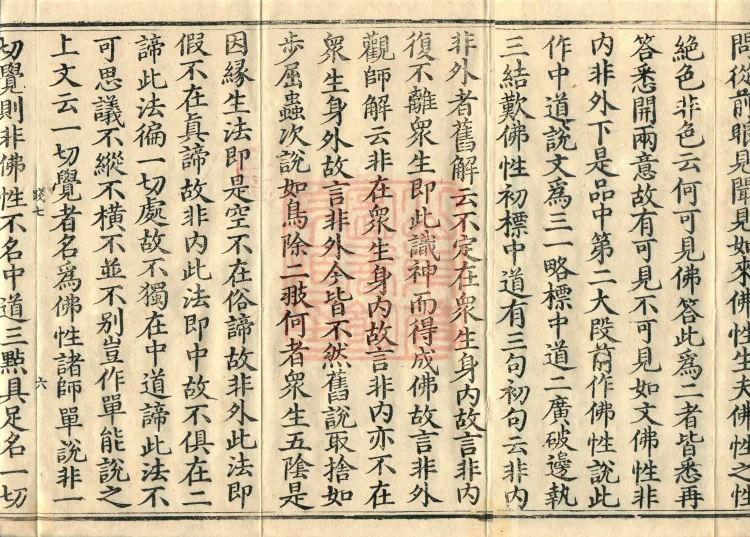 問從前眼見聞見如來佛性生夫佛性之性
絶色非色云何可見佛答此爲二者皆悉再
答悉開兩意故有可見不可見如文佛性非
内非外下是品中第二大段前作佛性說此
作中道說文爲三一略標中道二廣破邊執
三結歎佛性初標中道有三句初句云非内
非外者舊解云不定在衆生身内故言非内
復不離衆生即此識神而得成佛故言非外
觀師解云非在衆生身内故言非内亦不在
衆生身外故言非外今皆不然舊說取捨如
步屈蟲次說如鳥除二翄何者衆生五陰是
因緣生法即是空不在俗諦故非外此法即
假不在眞諦故非内此法即中故不俱在二
諦此法徧一切處故不獨在中道諦此法不
可思議不縱不橫不並不别豈作單能說之
上文云一切覺者名爲佛性諸師單說非一
踐七
六
切覺則非佛性不名中道三點具足名一切